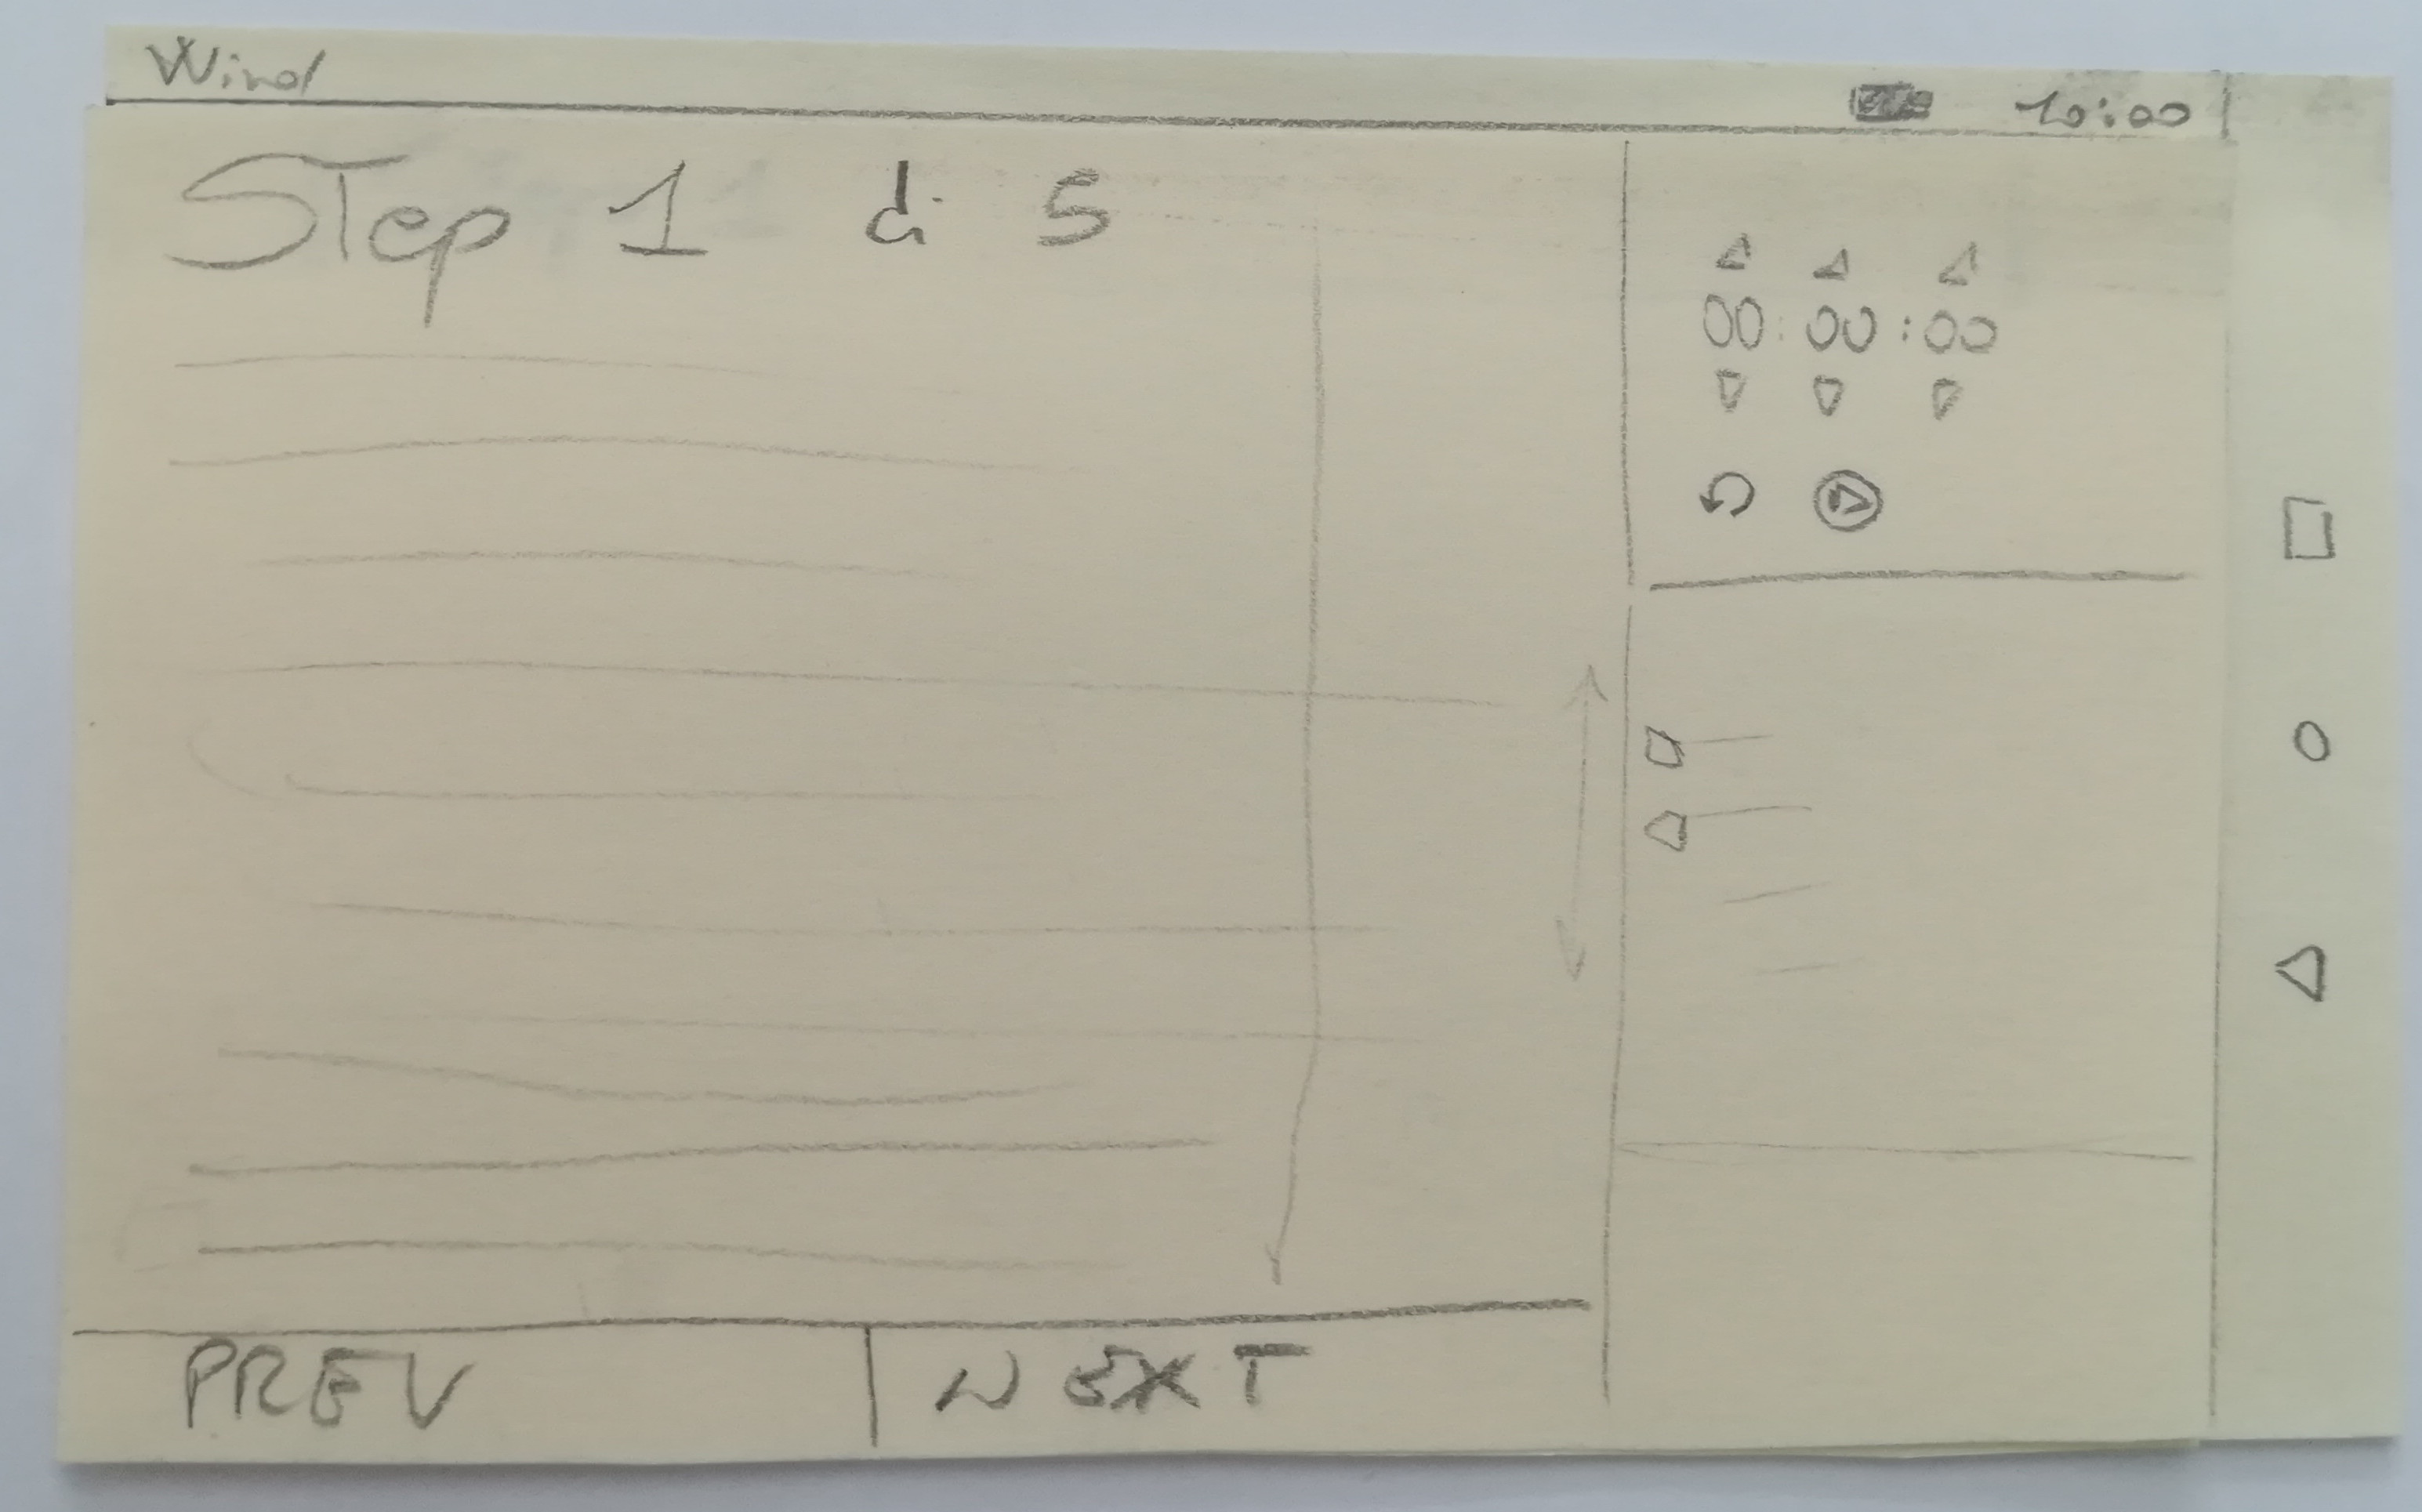 Wind 10:00
STep 1 di 5
00:00:00
PREV NEXT